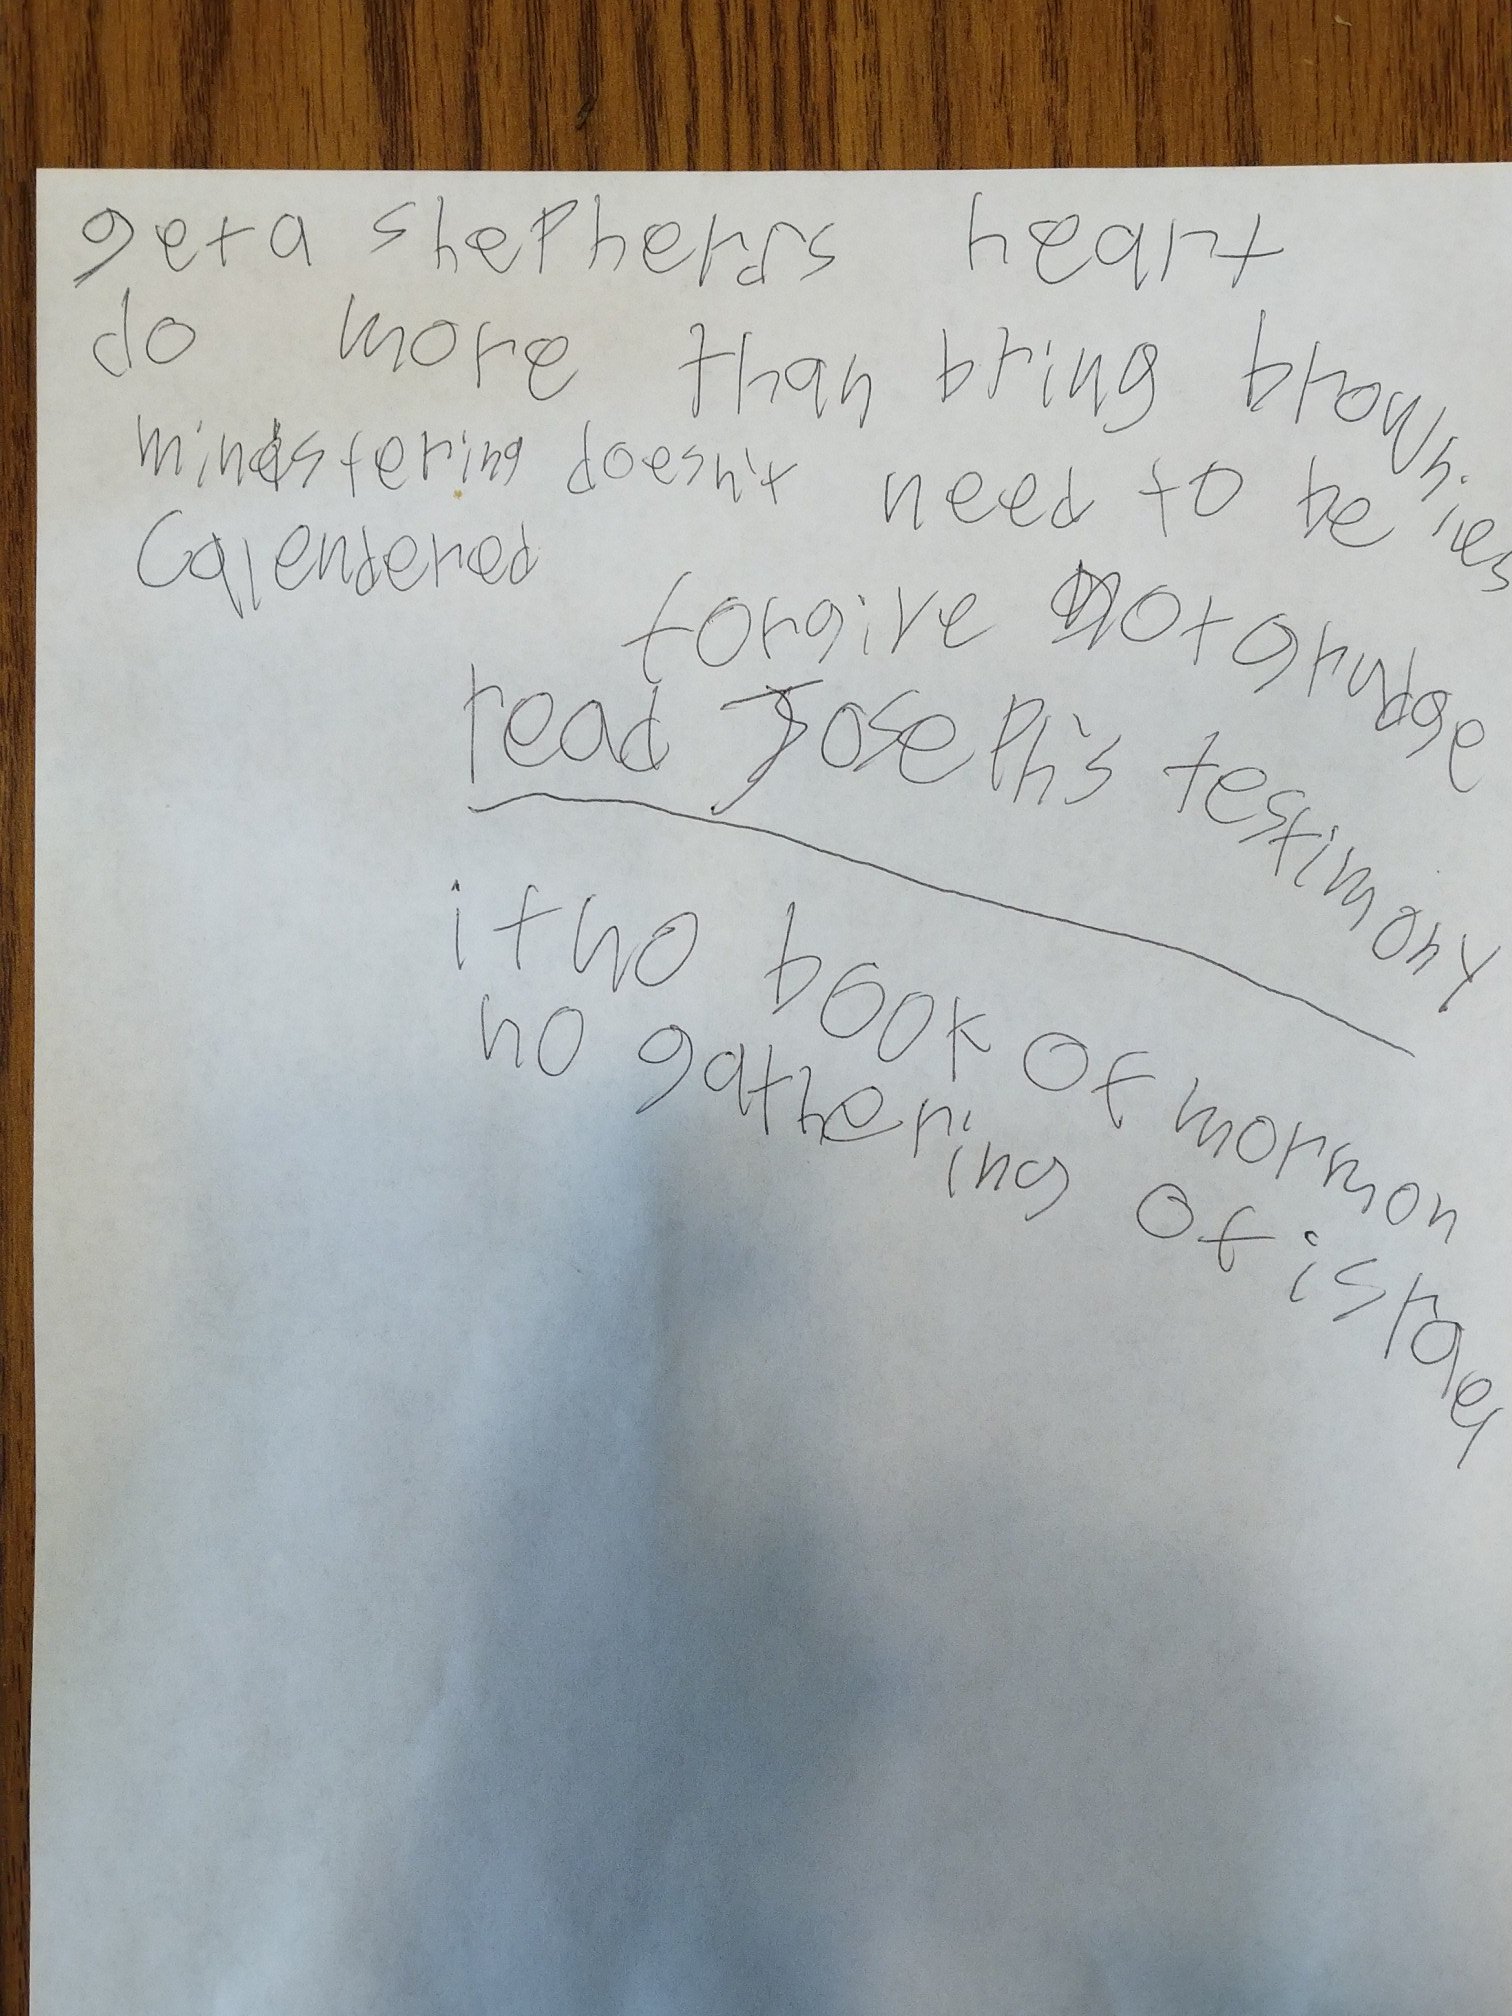 get a shepherds heart
do more than bring brownies
mindstering doesn't need to be
Calendered
forgive not grudge
read Joseph's testimony
if no book of mormon
no gathering of israel